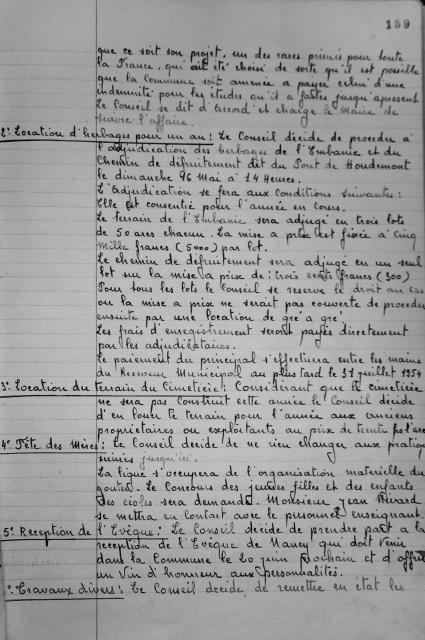 159
que ce soit son projet, un des rares primés pour toute
la France, qui ait été choisi de sorte qu'il est possible
que la Commune soit amenée à payer celui d'une
indemnité pour les études qu'il a faites jusqu'à présent
Le Conseil se dit d'accord et charge le Maire de
suivre l'affaire.
2: Location d'herbages pour un an: Le Conseil décide de procéder à
l'adjudication des herbages de l'Embanie et du
Chemin de défruitement dit du Pont de Houdemont
le dimanche 16 Mai à 14 Heures.
L'Adjudication se fera aux conditions suivantes:
Elle est consentie pour l'année en cours.
Le terrain de l'Embanie sera adjugé en trois lots
de 50 ares chacun. La mise à prix est fixée à Cinq
Mille francs (5000) par lot.
Le chemin de défruitement sera adjugé en un seul
lot sur la mise à prix de: trois cents francs (300)
Pour tous les lots le Conseil se réserve le droit au cas
où la mise à prix ne serait pas couverte de procéder
ensuite par une location de gré à gré.
Les frais d'enregistrement seront payés directement
par les adjudicataires.
Le paiement du principal s'effectuera entre les mains
du Receveur Municipal au plus tard le 31 juillet 1954
3: Location du terrain du Cimetière: Considérant que le cimetière
ne sera pas construit cette année le Conseil décide
d'en louer le terrain pour l'année aux anciens
propriétaires ou exploitants au prix de trente frs l'are
4: Fête des Mères: Le Conseil décide de ne rien changer aux pratiques
suivies jusqu'ici.
La ligue s'occupera de l'organisation matérielle du
goûter. Le Concours des jeunes filles et des enfants
des écoles sera demandé. Monsieur Jean
se mettra en contact avec le personnel enseignant.
5: Reception de l'Evêque: Le Conseil décide de prendre part à la
réception de l'Evêque de Nancy qui doit venir
dans la Commune le 20 juin prochain et d'offrir
un Vin d'honneur aux personnalités.
: Travaux divers: Le Conseil décide de remettre en état les